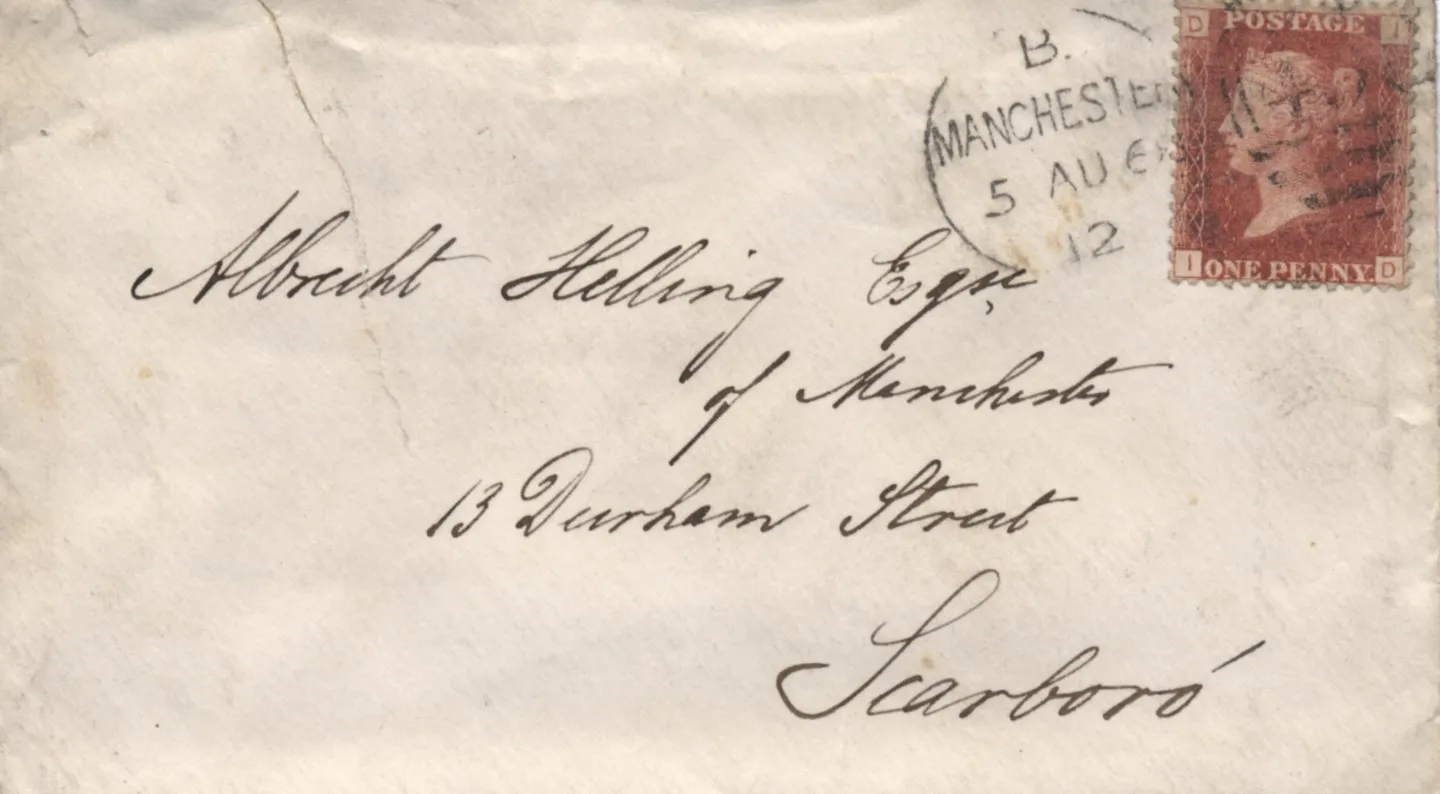 D POSTAGE I
B.
MANCHESTER
5 AU 68
12
I ONE PENNY. D
Albrecht Helling Esqre
of Manchester
13 Durham Street
Scarboró